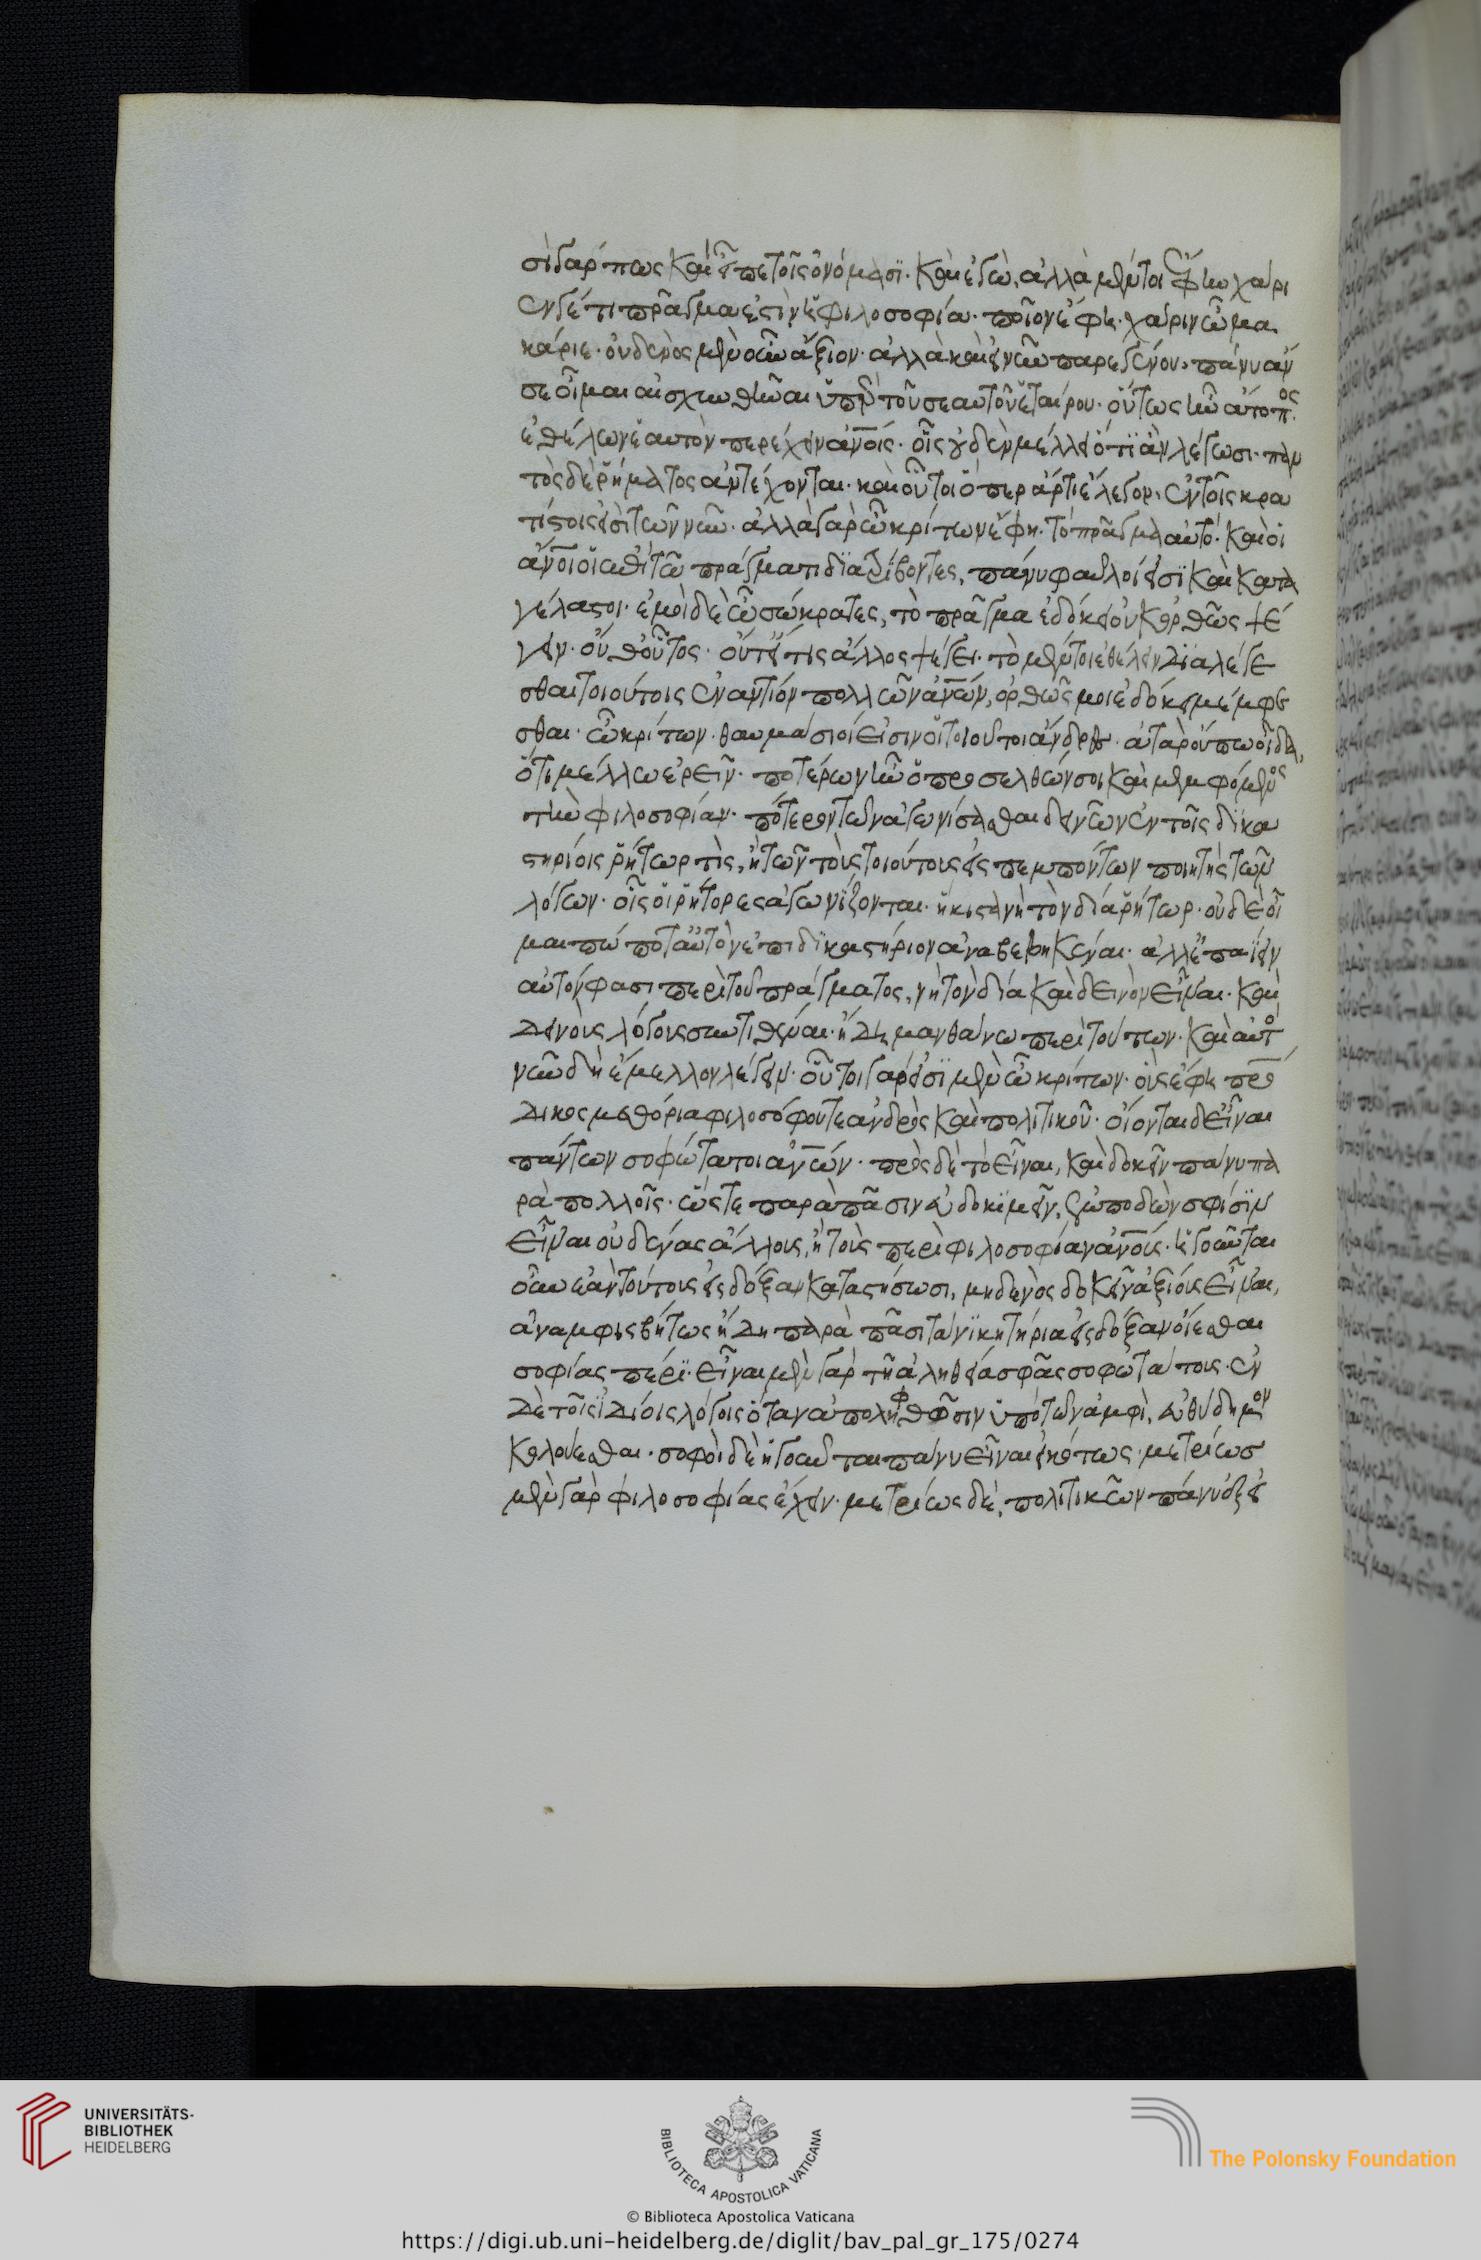 σὶ γάρ πως καὶ εἶπε τοῖς ὀνόμασι. καὶ ἐγὼ, ἀλλὰ μέντοι ἔφην χαρί
εν γέ τι πρᾶγμα ἐστὶν ἡ φιλοσοφία. ποῖον ἔφη. χαρίεν ὦ μα
κάριε. οὐδενὸς μὲν οὖν ἄξιον. ἀλλὰ καὶ εἰ νῦν παρεγένου, πάνυ ἄν
σε οἶμαι αἰσχυνθῆναι ὑπὲρ τοῦ σεαυτοῦ ἑταίρου. οὕτως ἦν ἄτοπος
ἐθέλων ἑαυτὸν παρέχειν ἀνοῖς. οἷς οὐδὲν μέλει ὅτι ἂν λέγωσι. παν
τὸς δὲ ῥήματος ἀντέχονται. καὶ οὗτοι ὅπερ ἄρτι ἔλεγον, ἐν τοῖς κρα
τίστοις εἰσὶ τῶν νῦν. ἀλλὰ γὰρ ὦ κρίτων ἔφη. τὸ πρᾶγμα αὐτὸ. καὶ οἱ
ἄνοι οἱ ἐπὶ τῷ πράγματι διατρίβοντες, πάνυ φαῦλοί εἰσι καὶ κατα
γέλαστοι. ἐμοὶ δὲ ὦ σώκρατες, τὸ πρᾶγμα ἐδόκει οὐκ ὀρθῶς ψέ
γειν. οὔθ οὗτος. οὔτ εἴ τις ἄλλος ψέγει. τὸ μέντοι ἐθέλειν διαλέγε
σθαι τοιούτοις ἐναντίον πολλῶν ἀνων, ὀρθῶς μοι ἐδόκει μέμφε
σθαι. ὦ κρίτων. θαυμάσιοί εἰσιν οἱ τοιοῦτοι ἄνδρες. ἀτὰρ οὔπω οἶδα,
ὅτι μέλλω ἐρεῖν. ποτέρων ἦν ὁ προσελθών σοι καὶ μεμφόμενος
τὴν φιλοσοφίαν. πότερον τῶν ἀγωνίσασθαι δεινῶν ἐν τοῖς δικα
στηρίοις ῥήτωρ τὶς, ἢ τῶν τοὺς τοιούτους εἰσπεμπόντων ποιητὴς τῶν
λόγων. οἷς οἱ ῥήτορες ἀγωνίζονται. ἥκιστα νὴ τὸν δία ῥήτωρ. οὐδὲ οἶ
μαι πώ ποτ αὐτὸν ἐπὶ δικαστήριον ἀναβεβηκέναι. ἀλλ ἐπαΐειν
αὐτόν φασι περὶ τοῦ πράγματος, νὴ τὸν δία καὶ δεινὸν εἶναι. καὶ
δεινοὺς λόγους συντιθέναι. ἤδη μανθάνω περὶ τούτων. καὶ αὐτὸ
νῦν δὴ ἔμελλον λέγειν. οὗτοι γάρ εἰσι μὲν ὦ κρίτων. οὓς ἔφη πρό
δικος μεθόρια φιλοσόφου τε ἀνδρὸς καὶ πολιτικοῦ. οἴονται δ εἶναι
πάντων σοφώτατοι ἀνων. πρὸς δὲ τὸ εἶναι, καὶ δοκεῖν πάνυ πα
ρὰ πολλοῖς. ὥστε παρὰ πᾶσιν εὐδοκιμεῖν, ἐμποδὼν σφίσιν
εἶναι οὐδένας ἄλλους, ἢ τοὺς περὶ φιλοσοφίαν ἀνοῖς. ἡγοῦνται
οὖν ἐὰν τούτους εἰς δόξαν καταστήσωσι, μηδενὸς δοκεῖν ἀξίους εἶναι,
ἀναμφισβήτως ἤδη παρὰ πᾶσι τὰ νικητήρια εἰς δόξαν οἴεσθαι
σοφίας πέρι. εἶναι μὲν γὰρ τῇ ἀληθείᾳ σφᾶς σοφωτάτους. ἐν
δὲ τοῖς ἰδίοις λόγοις ὅταν ἀποληφθῶσιν ὑπὸ τῶν ἀμφὶ, εὐθύδημον
κολούεσθαι. σοφοὶ δὲ ἡγοῦνται πάνυ εἶναι εἰκότως. μετρίως
μὲν γὰρ φιλοσοφίας ἔχειν. μετρίως δὲ, πολιτικῶν πάνυ ἐξ εἰ
UNIVERSITÄTS-
BIBLIOTHEK
HEIDELBERG
BIBLIOTECA APOSTOLICA VATICANA
The Polonsky Foundation
© Biblioteca Apostolica Vaticana
https://digi.ub.uni-heidelberg.de/diglit/bav_pal_gr_175/0274